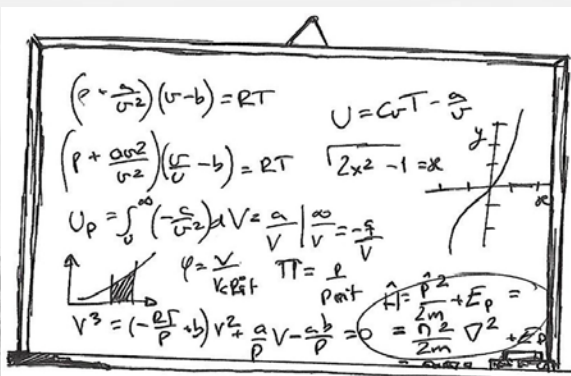 (p + a/v²)(v-b) = RT
U = CvT - a/v
(p + av2/v²)(v/v - b) = RT
√2x² - 1 = x
y
x
Up = ∫v^∞ (-a/v²)dV = a/V |∞/V = -a/V
φ = V/Vcrit π = p/pcrit
Ĥ = p̂²/2m + Ep =
V³ = (-RT/p + b)V² + a/p V - ab/p = 0
= n²/2m ∇² + Ep